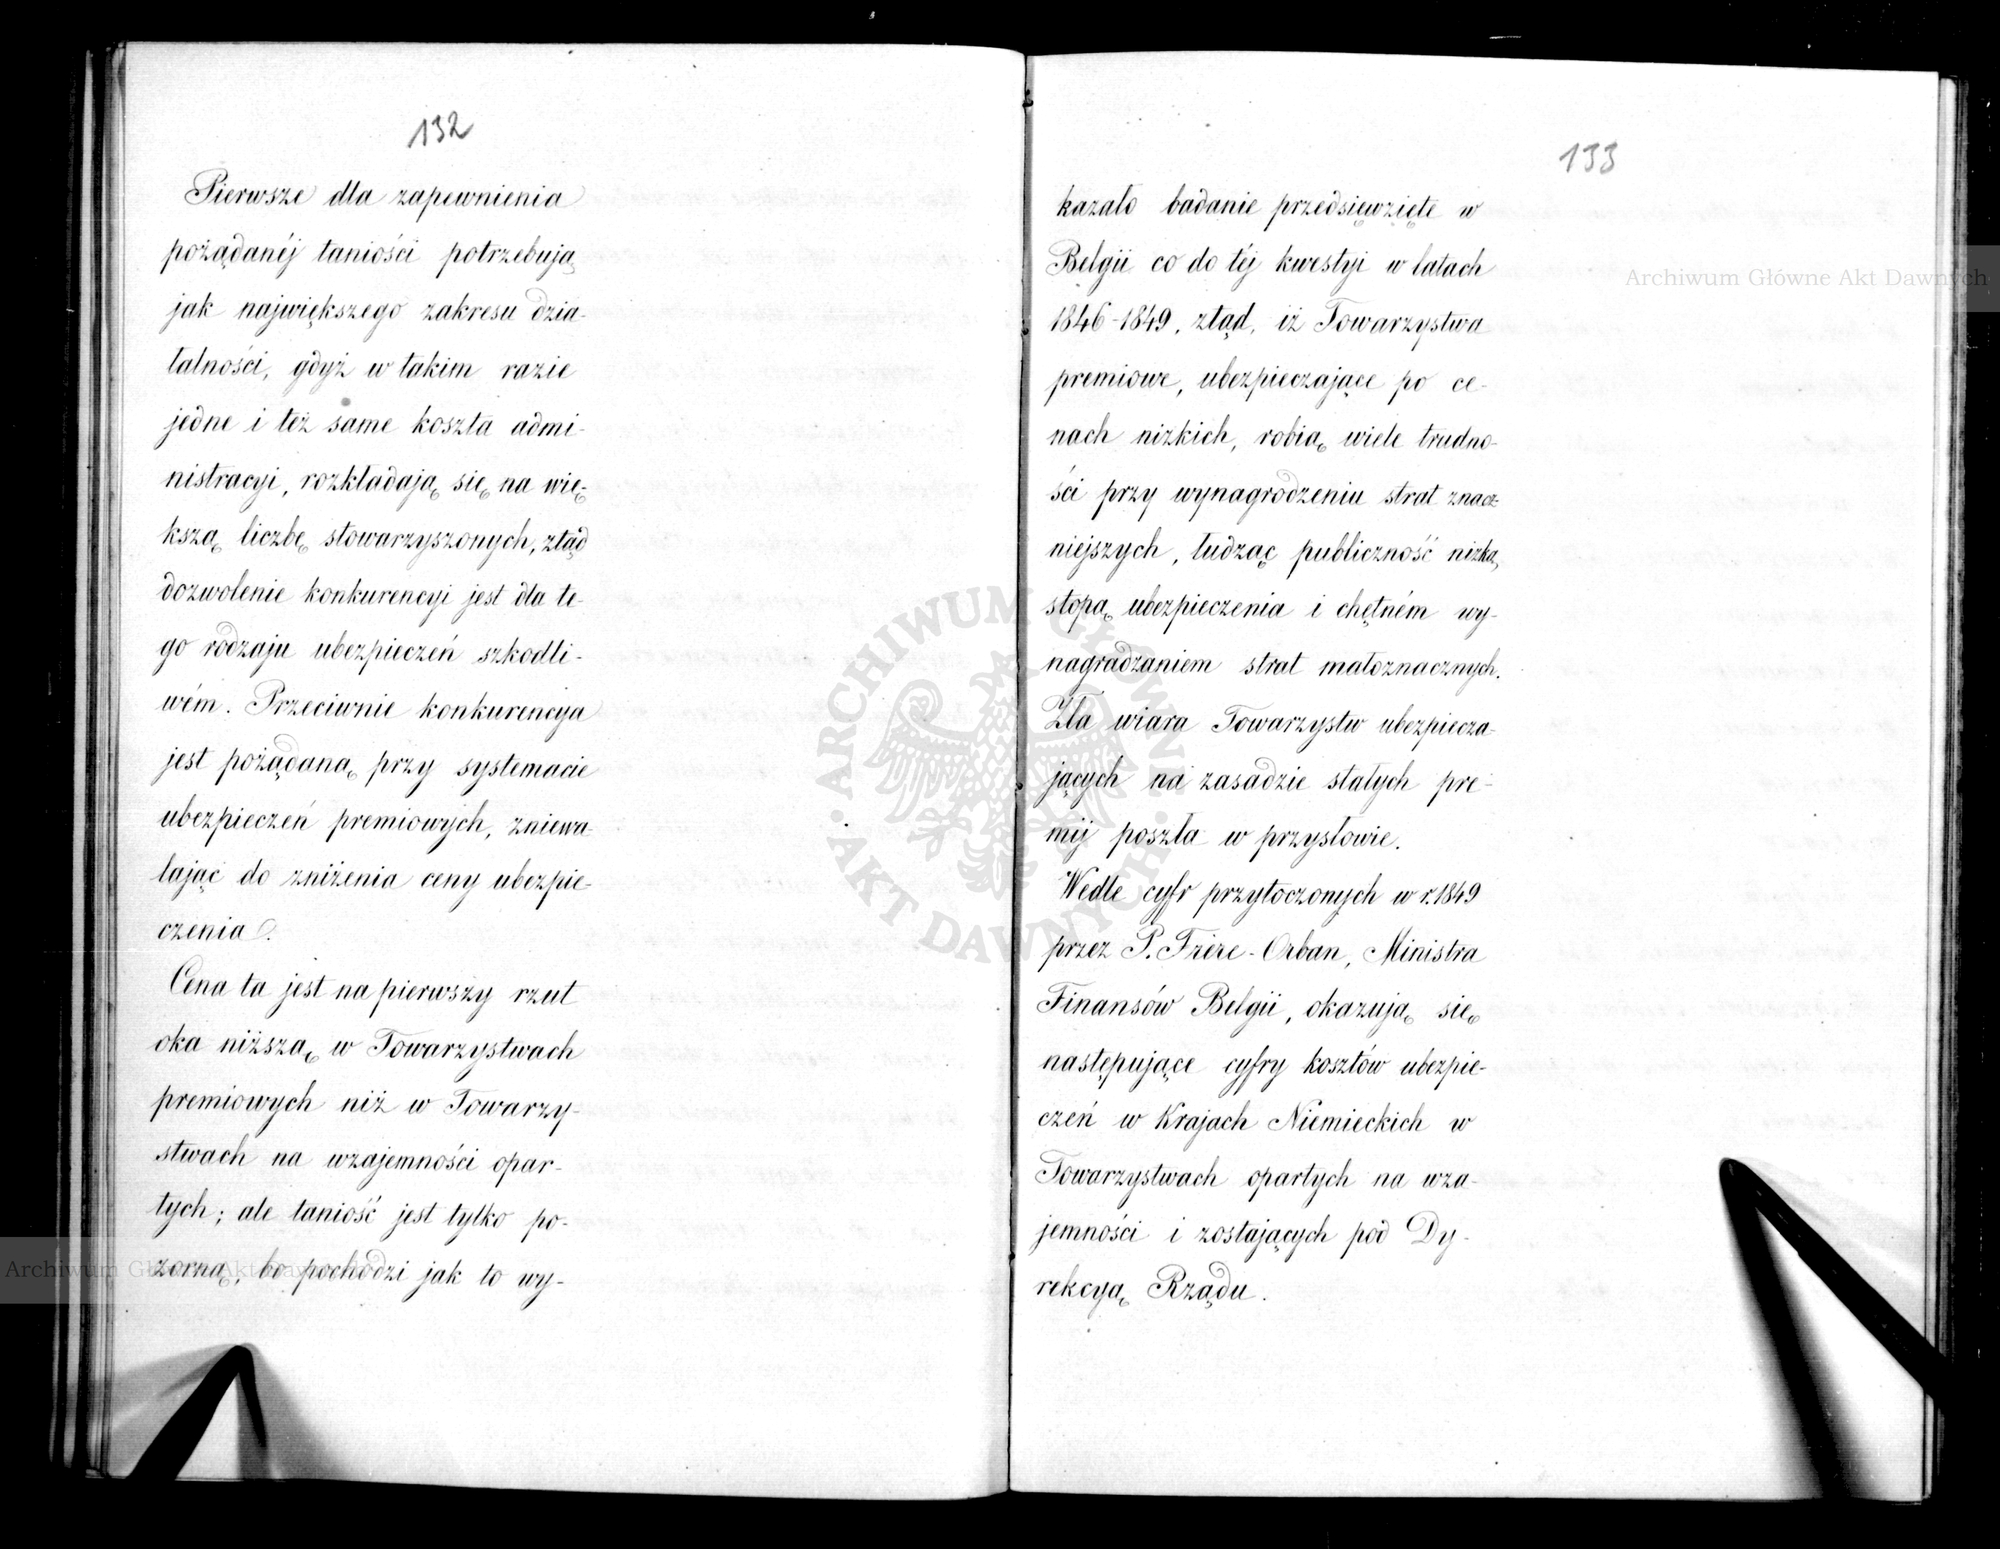 132
Pierwsze dla zapewnienia
pożądanéj taniości potrzebują
jak największego zakresu dzia-
łalności, gdyż w takim razie
jedne i też same koszta admi-
nistracyi, rozkładają się na wię-
kszą liczbę stowarzyszonych, ztąd
dozwolenie konkurencyi jest dla te-
go rodzaju ubezpieczeń szkodli-
wém. Przeciwnie konkurencya
jest pożądaną przy systemacie
ubezpieczeń premiowych, zniewa-
lając do zniżenia ceny ubezpie-
czenia.
Cena ta jest na pierwszy rzut
oka niższą w Towarzystwach
premiowych niż w Towarzy-
stwach na wzajemności opar-
tych; ale taniość jest tylko po-
zorną, bo pochodzi jak to wy-
133
kazało badanie przedsięwzięte w
Belgii co do téj kwestyi w latach
1846-1849, ztąd, iż Towarzystwa
premiowe, ubezpieczające po ce-
nach nizkich, robią wiele trudno-
ści przy wynagrodzeniu strat znacz-
niejszych, łudząc publiczność nizką
stopą ubezpieczenia i chętném wy-
nagradzaniem strat małoznacznych.
Zła wiara Towarzystw ubezpiecza-
jących na zasadzie stałych pre-
mij poszła w przysłowie.
Wedle cyfr przytoczonych w r. 1849
przez P. Frère-Orban, Ministra
Finansów Belgii, okazują się
następujące cyfry kosztów ubezpie-
czeń w Krajach Niemieckich w
Towarzystwach opartych na wza-
jemności i zostających pod Dy-
rekcyą Rządu.
Archiwum Główne Akt Dawnych
Archiwum Główne Akt Dawnych
ARCHIWUM GŁÓWNE
AKT DAWNYCH